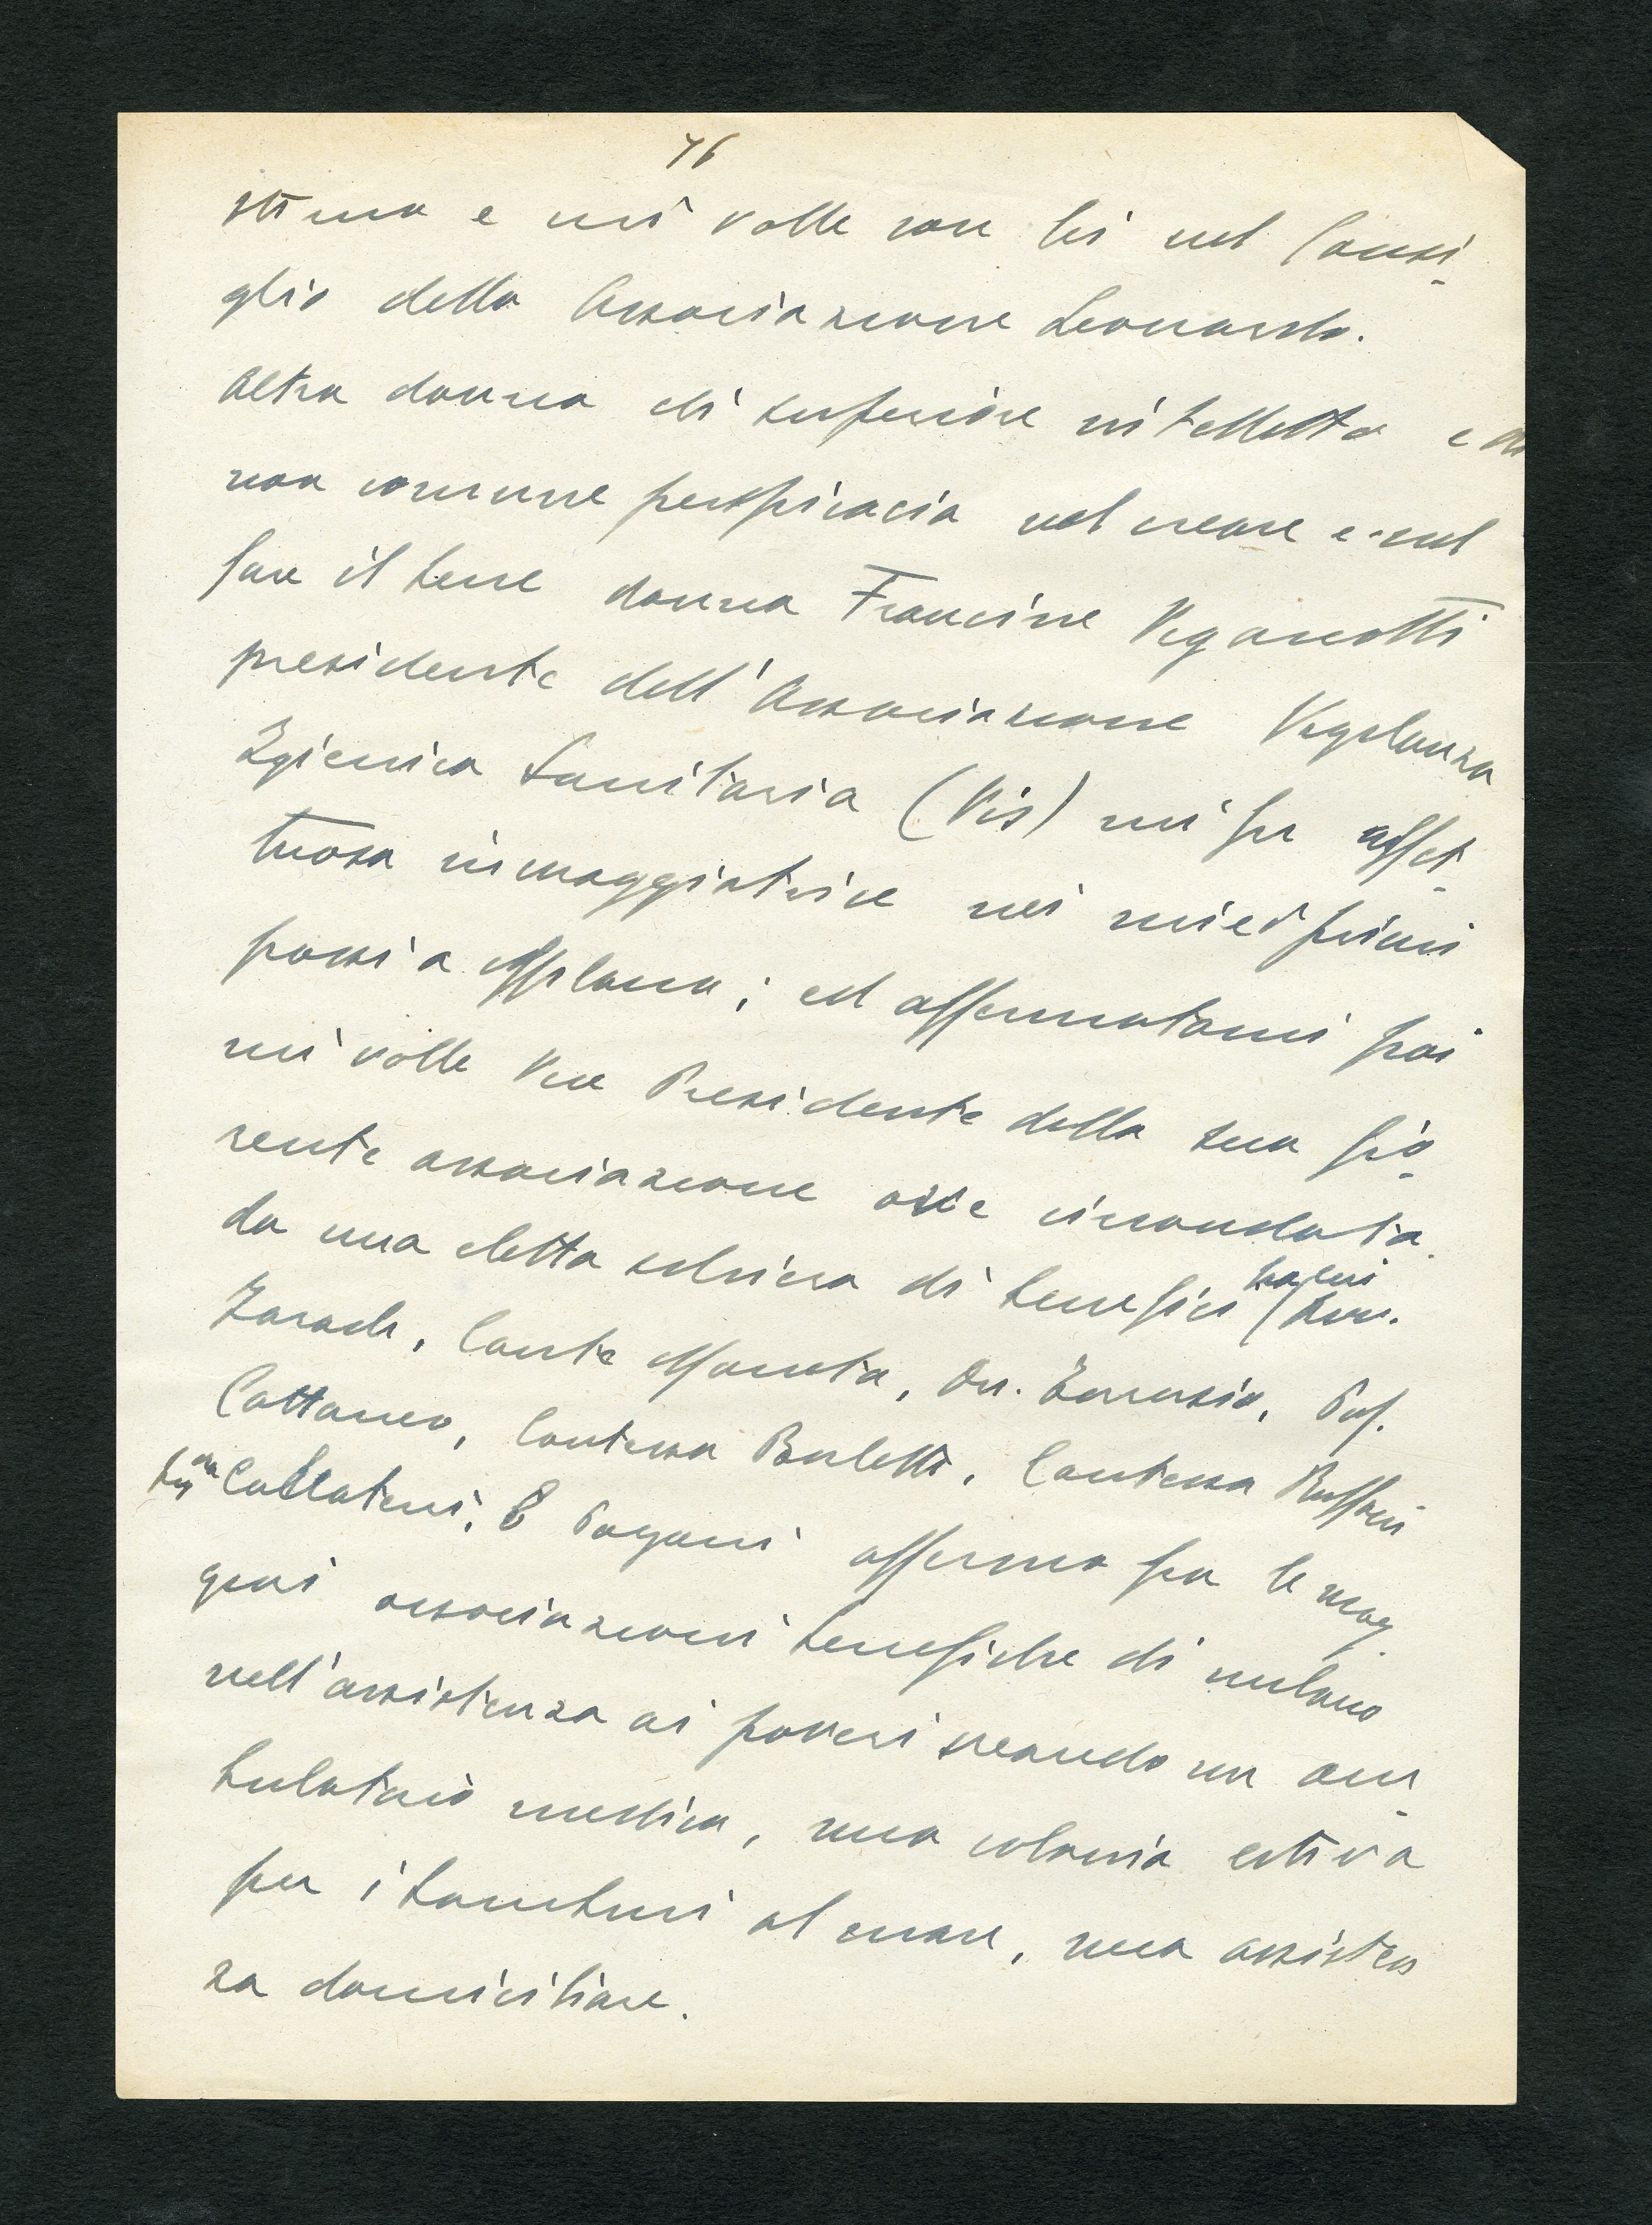 76
stima e mi volle con lei nel Consi-
glio della Associazione Leonardo.
Altra donna di superiore intelletto e di
non comune perspicacia nel creare e nel
fare il bene donna Francine Veganotti
presidente dell'Associazione Vigilanza
Igienica Sanitaria (Vis) mi fu affet-
tuosa incoraggiatrice nei miei primi
passi a Milano; ed affermatomi poi
mi volle Vice Presidente della sua fio-
rente associazione ove circondata
da una eletta schiera di benefici
Conte Dr. Prof.
Cattaneo, Contessa Barletti, Contessa Ruffini
afferma fra le mag-
giori associazioni benefiche di milano
nell'assistenza ai poveri creando un am-
bulatorio medico, una colonia estiva
per i bambini al mare, una assisten
za domiciliare.